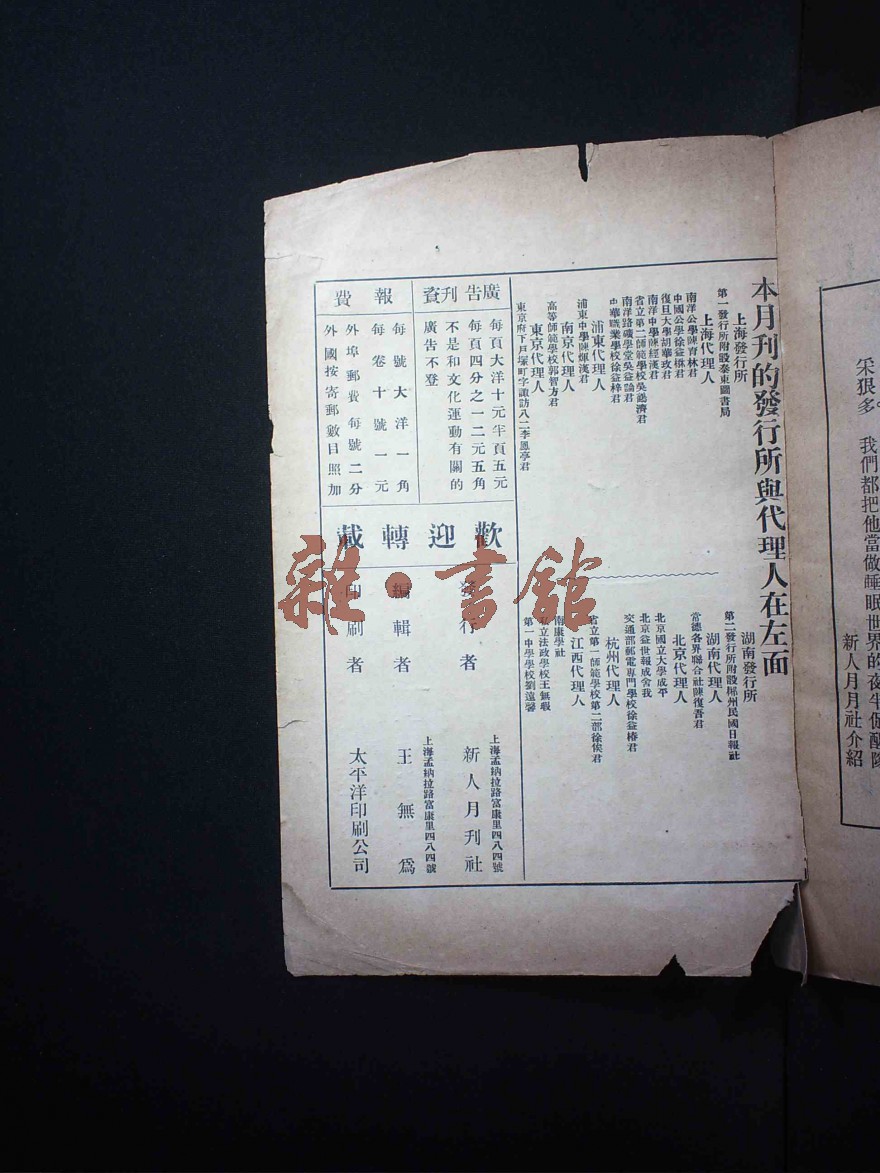 本月刊的發行所與代理人在左面
上海發行所
第一發行所附設泰東圖書局
上海代理人
南洋公學陳育林君
中國公學徐益樵君
復旦大學胡華玫君
南洋中學陳經漢君
省立第二師範學校吳濟君
南洋路礦學堂吳益論君
中華職業學校徐益梓君
浦東代理人
浦東中學陳煇漢君
南京代理人
高等師範學校郭智方君
東京代理人
東京府下戶塚町字諏訪八二李鳳亭君
湖南發行所
第二發行所附設郴州民國日報社
湖南代理人
常德各界聯合社陳復吾君
北京代理人
北京國立大學成平
北京益世報成舍我
交通部郵電專門學校徐益椿君
杭州代理人
省立第一師範學校第二部徐俟君
江西代理人
南康學社
私立法政學校王無暇
第一中學學校劉遠馨
廣告刊資
每頁大洋十元半頁五元
每頁四分之一二元五角
不是和文化運動有關的
廣告不登
報費
每號大洋一角
每卷十號一元
外埠郵費每號二分
外國按寄郵數目照加
歡迎轉載
發行者
上海孟納拉路富康里四八四號
新人月刊社
編輯者
上海孟納拉路富康里四八四號
王無爲
印刷者
太平洋印刷公司
雜·書館
采狠多。
我們都把他當做睡眠世界的夜半促醒
新人月月社介紹